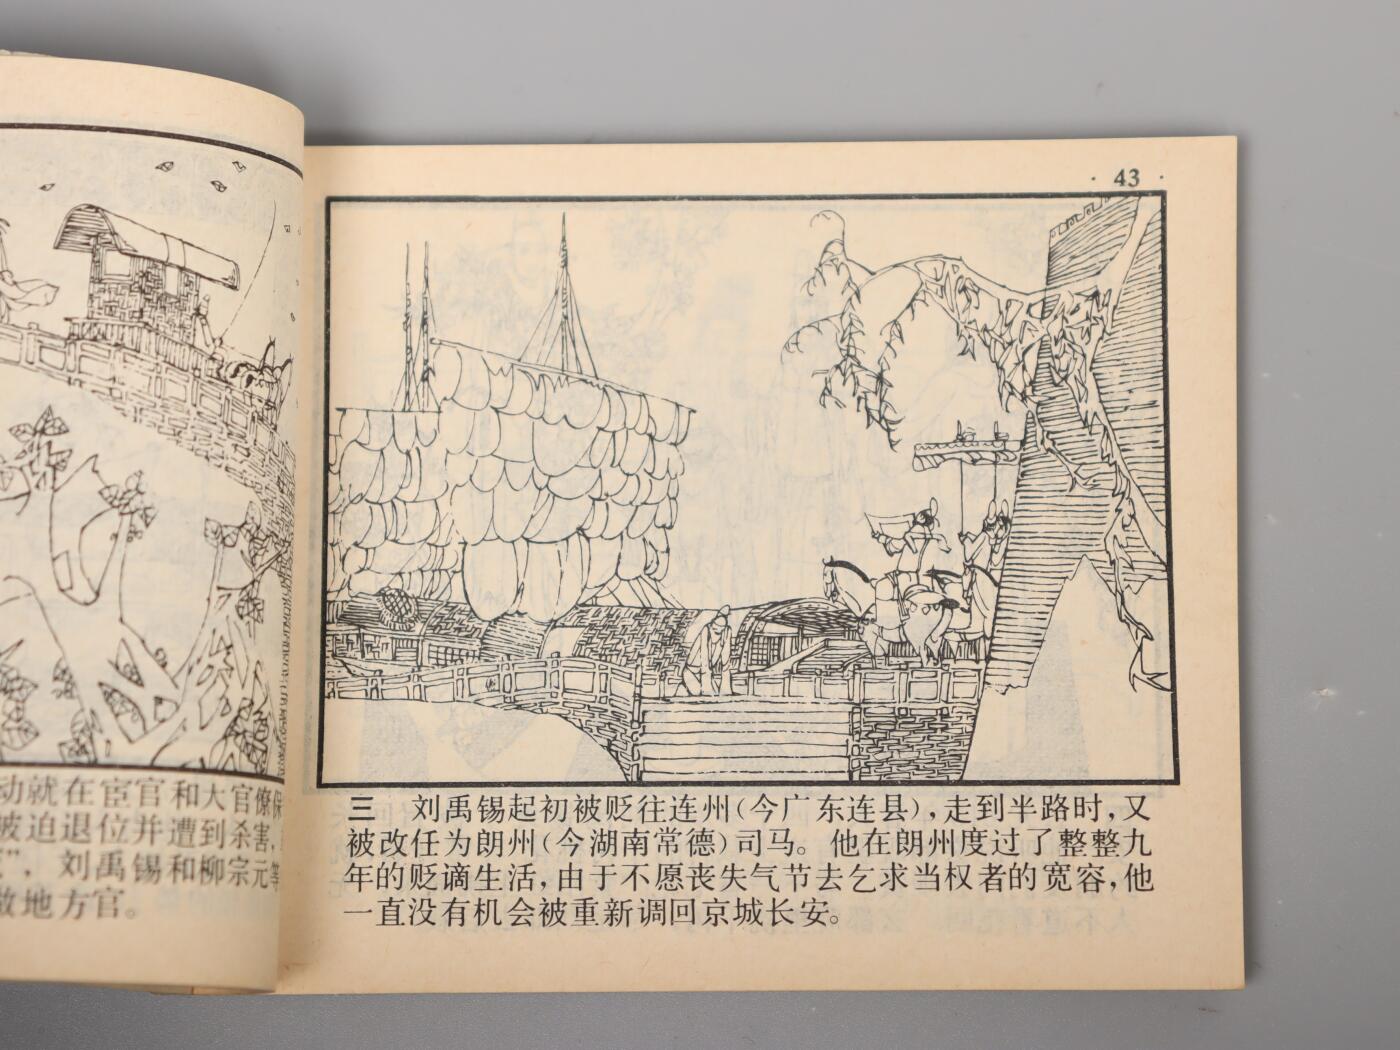 动就在宦官和大官僚保
被迫退位并遭到杀害，
”，刘禹锡和柳宗元等
做地方官。
· 43 ·
三 刘禹锡起初被贬往连州（今广东连县），走到半路时，又
被改任为朗州（今湖南常德）司马。他在朗州度过了整整九
年的贬谪生活，由于不愿丧失气节去乞求当权者的宽容，他
一直没有机会被重新调回京城长安。